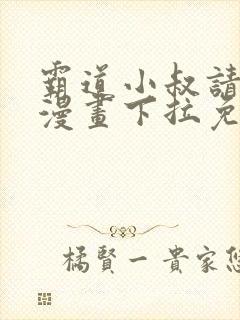 霸道小叔請
漫畫下拉免
橘賢一貴家悠